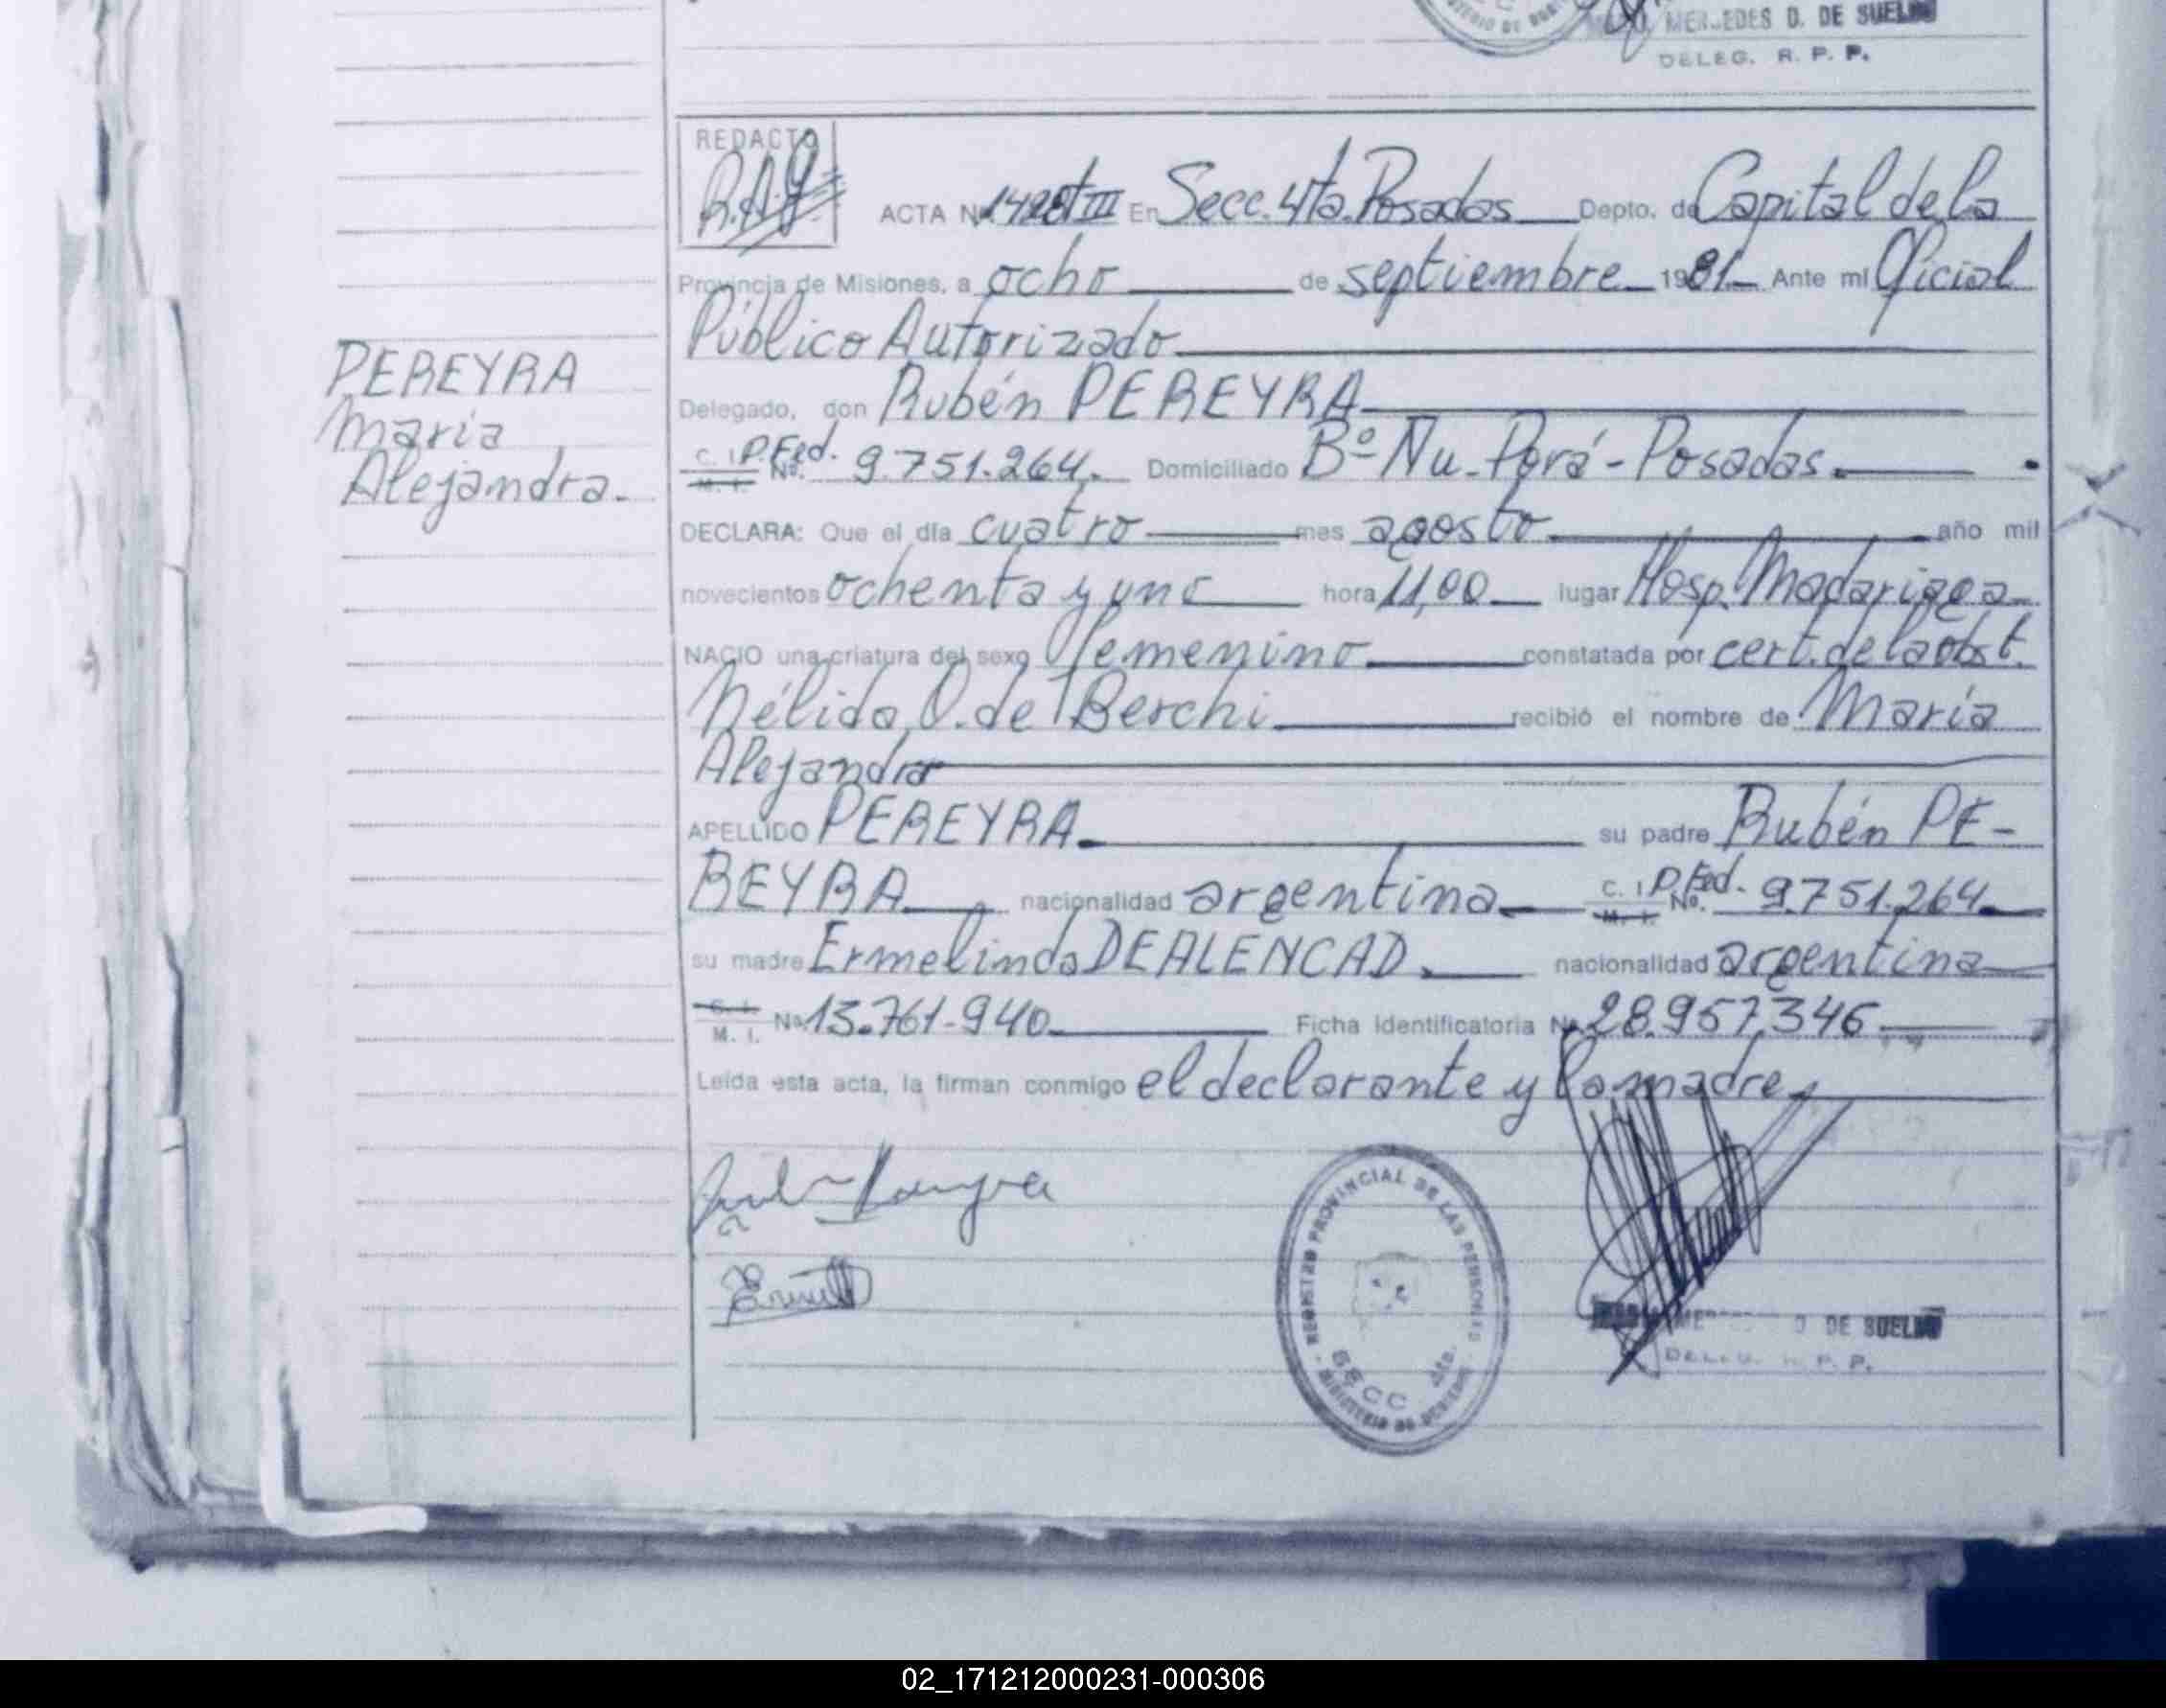 MERCEDES D. DE SUELDO
DELEG. R. P. P.
REDACTO
R.A.G.
ACTA Nº 1428 t III En Secc. 4ta. Posadas Depto. de Capital de la
Provincia de Misiones, a ocho de septiembre 1981 Ante mi Oficial
Público Autorizado
Delegado, don Rubén PEREYRA
C. I. P. Fed.
M. I. Nº. 9.751.264. Domiciliado Bº Ñu-Porá-Posadas.
DECLARA: Que el día cuatro mes agosto año mil
novecientos ochenta y uno hora 11,00 lugar Hosp. Madariaga
NACIO una criatura del sexo femenino constatada por cert. de la obst.
Nélida O. de Berchi recibió el nombre de María
Alejandra
APELLIDO PEREYRA. su padre Rubén PE-
REYRA nacionalidad argentina C. I. P. Fed.
M. I. Nº. 9.751.264
su madre Ermelinda DE ALENCAD. nacionalidad argentina
C. I.
M. I. Nº 13.761.940 Ficha Identificatoria Nº 28.957.346
Leída esta acta, la firman conmigo el declarante y la madre.
PEREYRA
María
Alejandra.
REGISTRO PROVINCIAL DE LAS PERSONAS
SECC 4ta.
MINISTERIO DE GOBIERNO
D. DE SUELDO
DELEG. R. P. P.
02_171212000231-000306